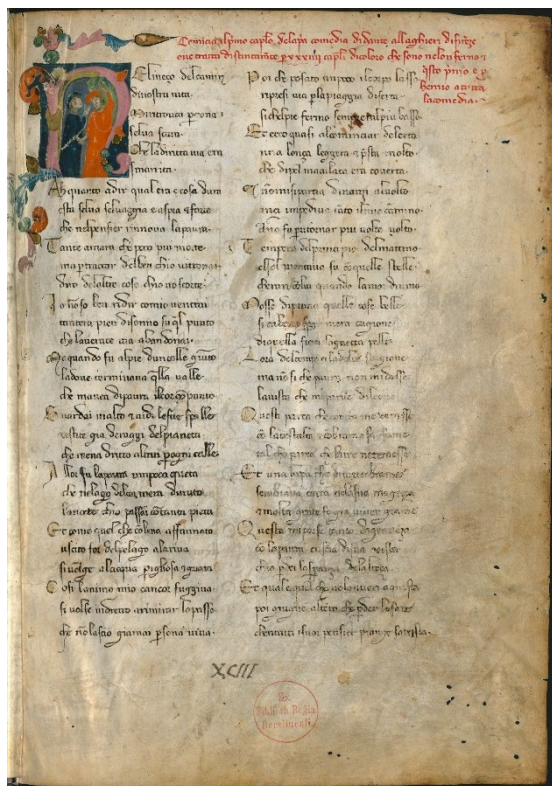 Comincia il primo capło dela pa comedia di dante allaghieri di firēze
one tratta di
sono nelon ferno
q̄sto pmo e p
hemio a tutta
la comedia
Nel meço del camin
di nostra vita
mi ritrovai p una
selva scura
Che la diritta via era
smarrita
Ah quanto a dir qual era e cosa dura
esta selva selvaggia e aspra e forte
che nel pensier rinnova la paura
Tante amara che poco piu morte
ma p trattar del ben chio vi trovai
diro del altre cose chio vo scorte
Io non so ben ridir comio ventrai
tantera pien di sonno su q̄l punto
che la verace via abandonai
ma quando fui al pie dun colle giunto
la dove terminava q̄lla valle
che mavea di paura il cor cōpunto
Guardai in alto e vidi le sue spalle
vestite gia de raggi del pianeta
che mena dritto altrui p ogni calle
Allor fu la paura un poco queta
che nel lago del cor mera durata
la notte chio passai cō tanta pieta
Et come quei che cō lena affannata
uscito for del pelago a la riva
si volge a lacqua pigliosa e guata
Cosi lanimo mio cancor fuggiva
si volse indietro a rimirar lo passo
che nō lascio giamai psona viva
Poi che posato un poco il corpo lasso
ripresi via p la piaggia diserta
si chel pie fermo sempre era l piu basso
Et ecco quasi al cominciar de lerta
una lonça leggera e psta molto
che di pel maculato era coverta
E nō mi si partia dinançi al volto
ançi impediva tāto il mio camino
chio fu p ritornar piu volte volto
Tempera dal principio del mattino
el sol montava su cō quelle stelle
cheran cō lui quando lamor divino
Mosse di prima quelle cose belle
si ca bene sperar mera cagione
di quella fiera la gaetta pelle
Lora del tempo e la dolce stagione
ma nō si che paura non mi desse
la vista che mapparve dun leone
Questi parea che contra me venesse
cō la test alta e cō rabiosa fame
si che parea che laere ne temesse
Et una lupa che di tutte brame
sembiava carca ne la sua magreça
e molte gente fe gia viver grame
Questa mi porse tanto di graveça
cō la paura cuscia di sua vista
chio pdei la sperança de laltecça
Et quale quei che volontieri acquista
poi giugne l tempo che pder lo face
che n tutti i suoi pensier piange e satrista
XCIII
Ex
Biblioth. Regia
Berolinensi